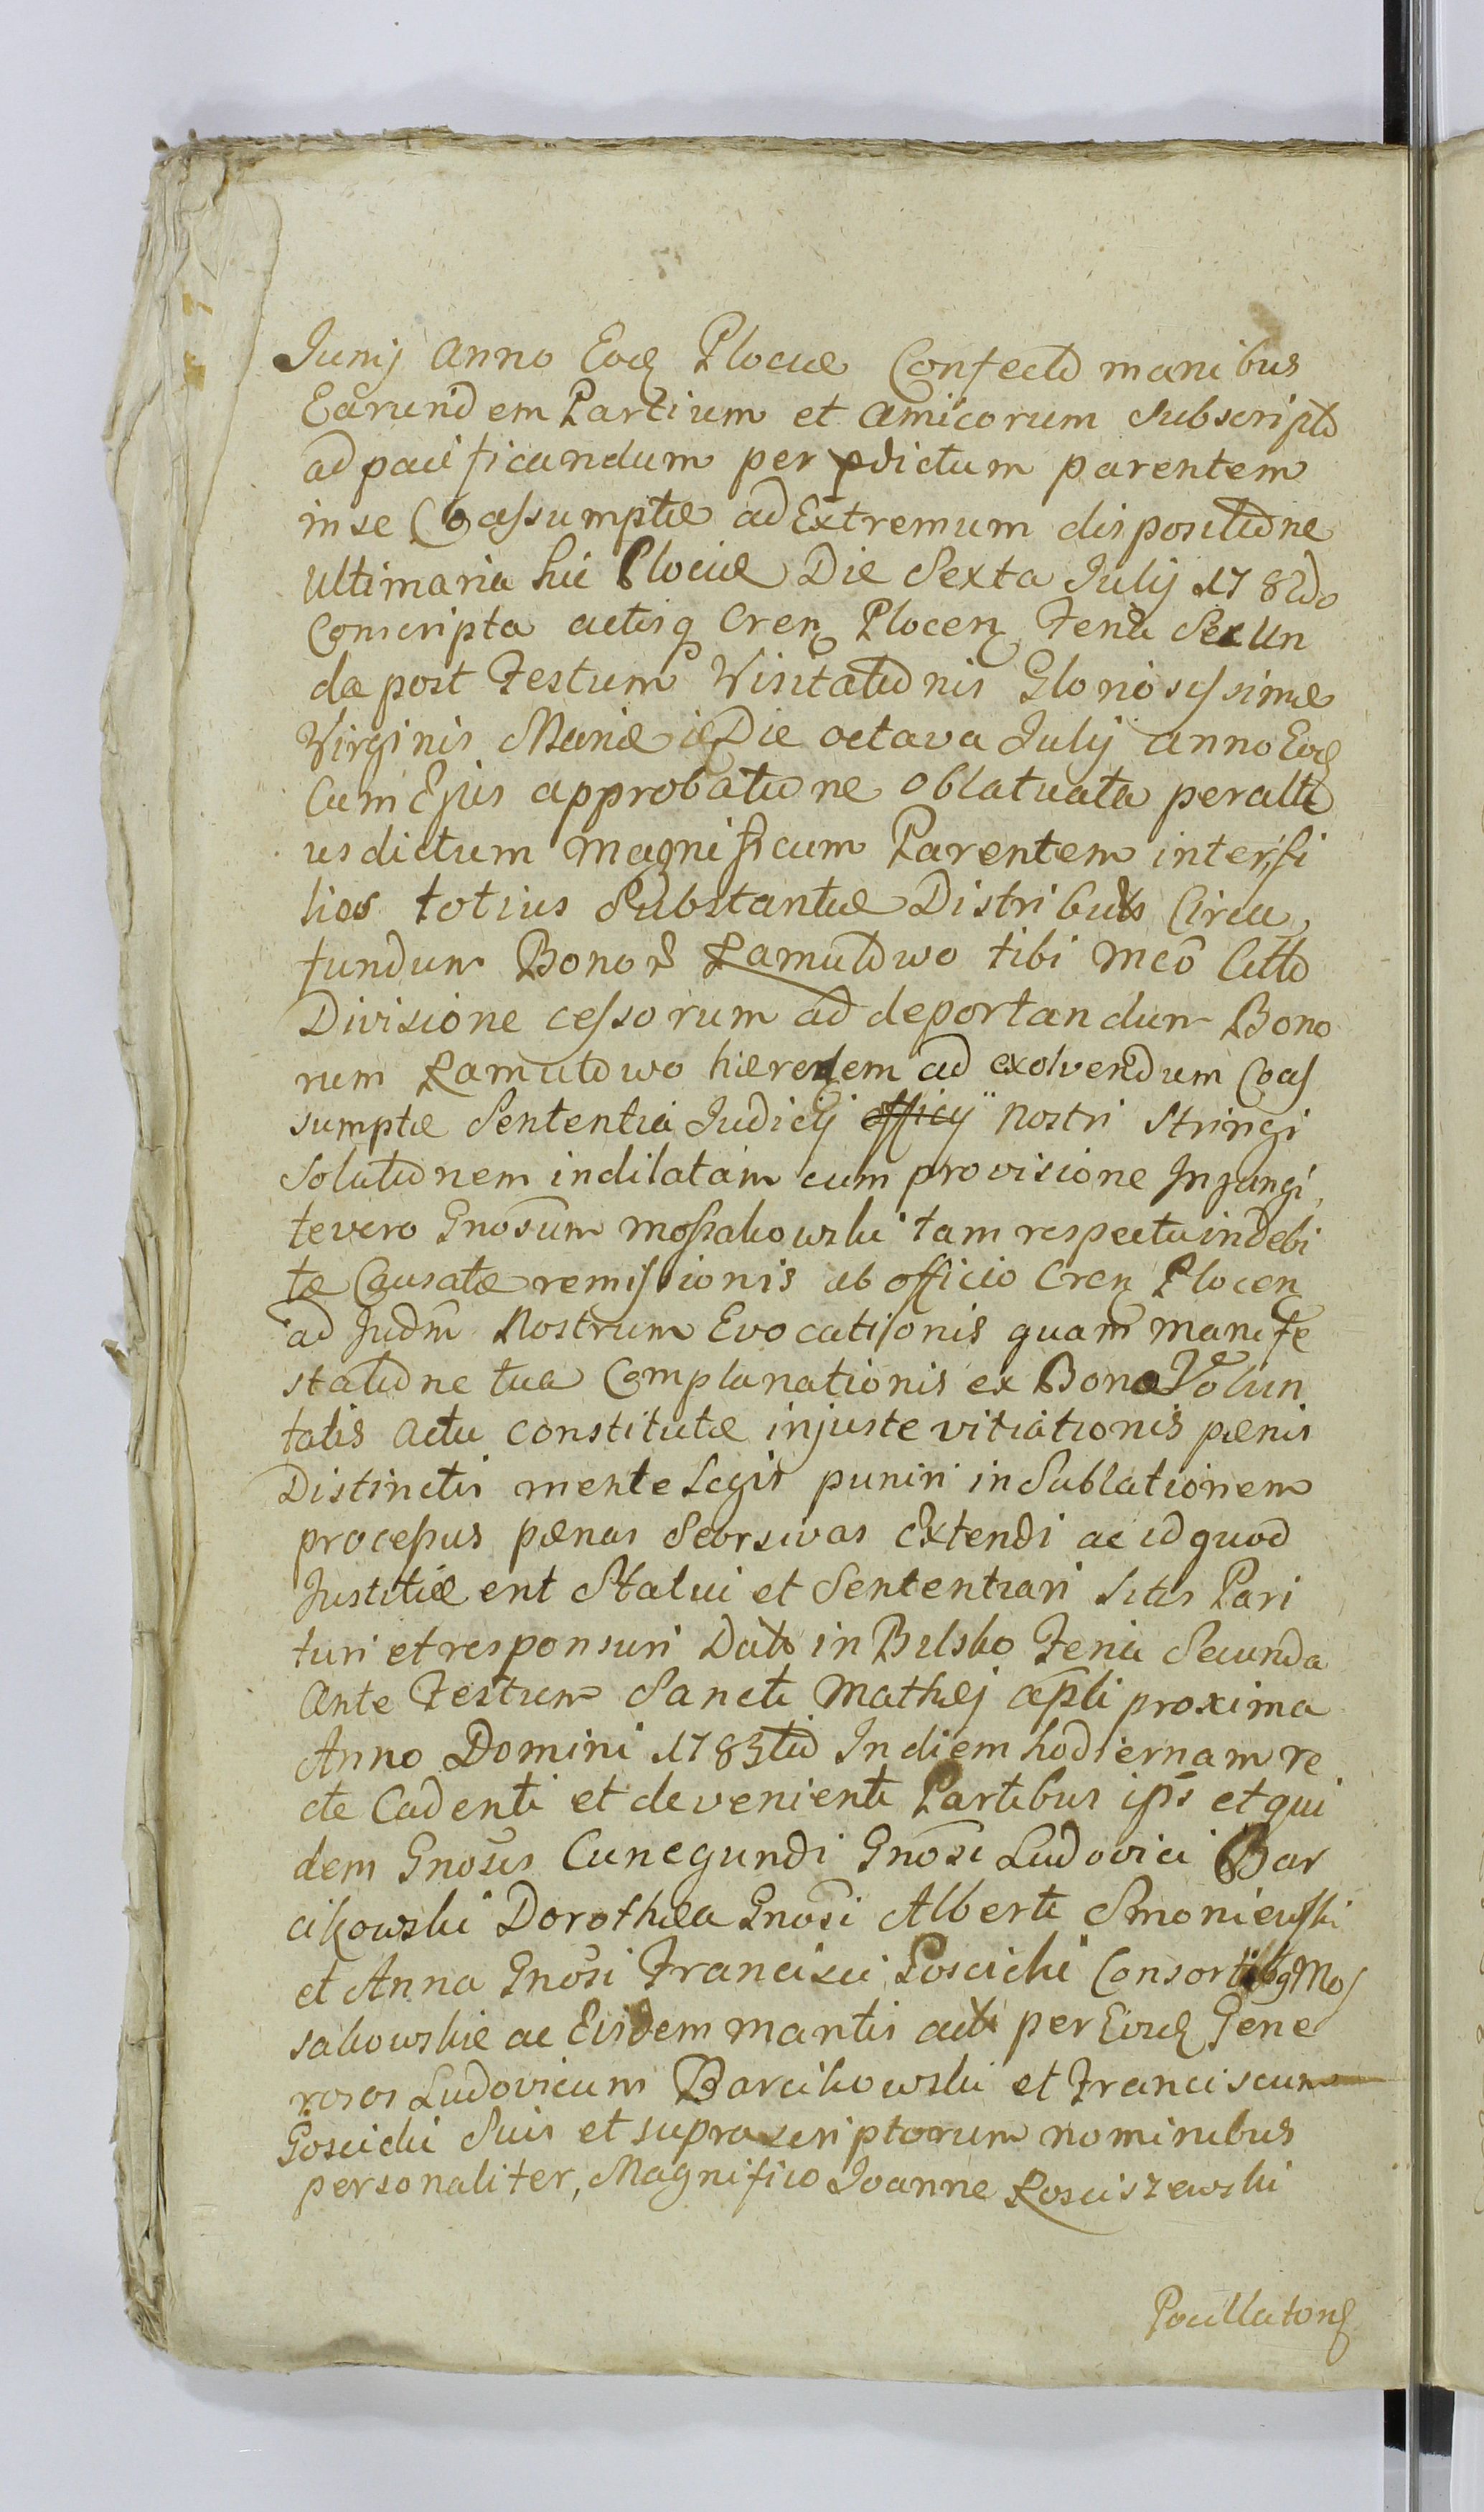 Junij anno Eoq Plociæ Confecto manibus
Earundem Partium et amicorum subscripto
ad pacificandum per pdictum parentem
in se Coassumptæ ad Extremum dispositione
ultimaria hic Plociæ Die Sexta Julij 1782do
Conscripta actisq Cren Plocen Feria Secun
da post Festum Visitationis Gloriosissimæ
Virginis Mariæ ie Die octava July anno Eoq
Cum Ejus approbatione oblatuata per alti
us dictum Magnificum Parentem inter fi
lios totius Substantiæ Distributo Circa
fundum Bonor Ramutowo tibi Mco Citto
Divisione cessorum ad deportandum Bono
rum Ramutowo hæredem ad exolvendum Coas
sumptæ Sententia Judicij officij nostri Stringi
Solutionem indilatam cum provisione Injungi
te vero Gnosum Mossakowski tam respectu indebi
tæ Causatæ remissionis ab officio Cren Plocen
ad Judm Nostrum Evocationis quam manife
statione tua Complanationis ex Bono Volun
tatis actu constitutæ injuste vitiationis pænis
Distinctis mente Legis puniri in Sublationem
processus pænas Seorsivas Extendi ac id quod
Justitiæ erit Statui et Sententiari Sitis Pari
turi et responsuri Dato in Bilsko Feria Secunda
Ante Festum Sancti Mathej apli proxima
Anno Domini 1783tio In diem hodiernam re
cte Cadenti et devenienti Partibus ips et qui
dem Gnosis Cunegundi Gnosi Ludovici Bar
cikowski Dorothea Gnosi Alberti Smoniewski
et Anna Gnosi Francisci Goscicki Consortibq Mos
sakowskie ac Eisdem maritis acti per Eosq Gene
rosos Ludovicum Barcikowski et Franciscum
Goscicki Suis et suprascriptorum nominibus
personaliter, Magnifico Joanne Rosciszewski
Pocillatorq